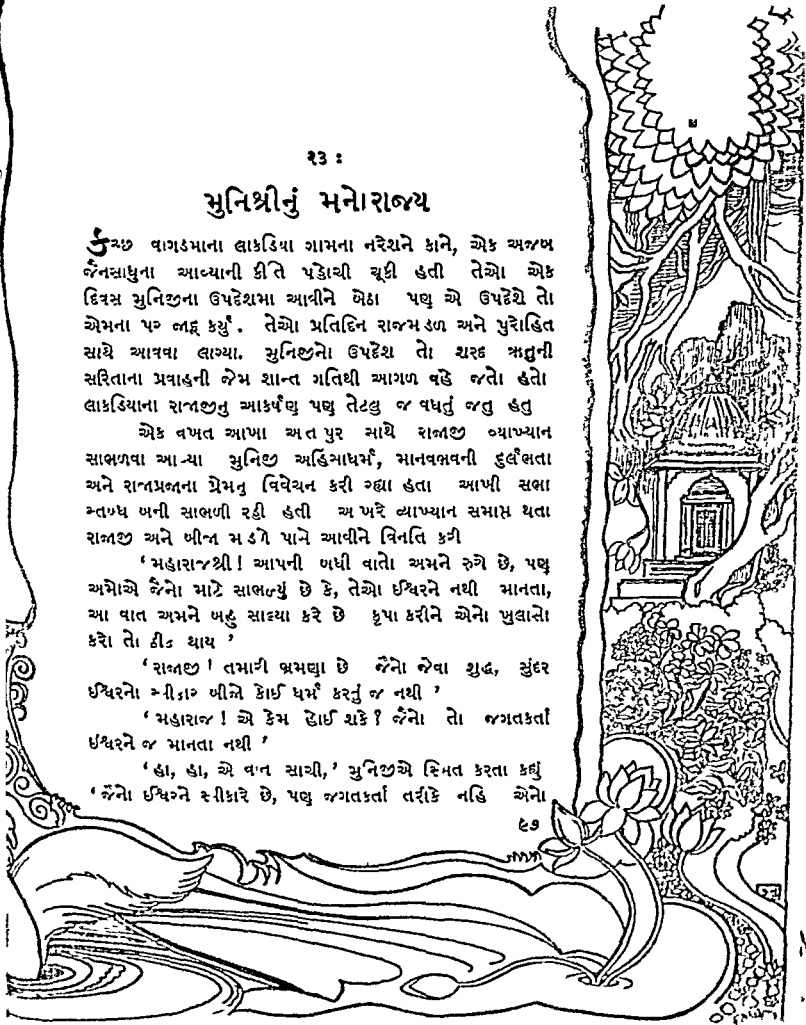 ૨૩ :
મુનિશ્રીનું મનોરાજ્ય
કચ્છ વાગડમાના લાકડિયા ગામના નરેશને કાને, એક અજબ
જૈનસાધુના આવ્યાની કીર્તિ પહોચી ચૂકી હતી તેઓ એક
દિવસ મુનિજીના ઉપદેશમા આવીને બેઠા પણ એ ઉપદેશે તો
એમના પર જાદૂ કર્યું. તેઓ પ્રતિદિન રાજમડળ અને પુરોહિત
સાથે આવવા લાગ્યા. મુનિજીનો ઉપદેશ તો શરદ ઋતુની
સરિતાના પ્રવાહની જેમ શાન્ત ગતિથી આગળ વહે જતો હતો
લાકડિયાના રાજાજીનુ આકર્ષણ પણ તેટલુ જ વધતું જતુ હતુ
એક વખત આખા અતપુર સાથે રાજાજી વ્યાખ્યાન
સાભળવા આવ્યા મુનિજી અહિંસાધર્મ, માનવભવની દુર્લભતા
અને રાજાપ્રજાના પ્રેમનુ વિવેચન કરી રહ્યા હતા આખી સભા
સ્તબ્ધ બની સાભળી રહી હતી અખરે વ્યાખ્યાન સમાપ્ત થતા
રાજાજી અને બીજા મડળે પાસે આવીને વિનતિ કરી
‘મહારાજશ્રી! આપની બધી વાતો અમને રુચે છે, પણ
અમોએ જૈનો માટે સાભળ્યું છે કે, તેઓ ઈશ્વરને નથી માનતા,
આ વાત અમને બહુ સાલ્યા કરે છે કૃપા કરીને એનો ખુલાસો
કરો તો ઠીક થાય ’
‘રાજાજી! તમારી ભ્રમણા છે જૈનો જેવા શુદ્ધ, સુંદર
ઈશ્વરનો સ્વીકાર બીજો કોઈ ધર્મ કરતું જ નથી ’
‘મહારાજ! એ કેમ હોઈ શકે? જૈનો તો જગતકર્તા
ઈશ્વરને જ માનતા નથી ’
‘હા, હા, એ વાત સાચી,’ મુનિજીએ સ્મિત કરતા કહ્યુ
‘જૈનો ઈશ્વરને સ્વીકારે છે, પણ જગતકર્તા તરીકે નહિ એનો
૯૭